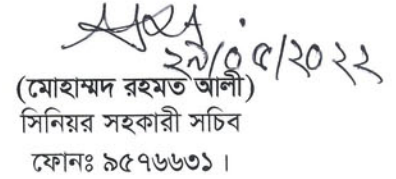 ২৯/০৫/২০২২
(মোহাম্মদ রহমত আলী)
সিনিয়র সহকারী সচিব
ফোনঃ ৯৫৭৬৬৩১।